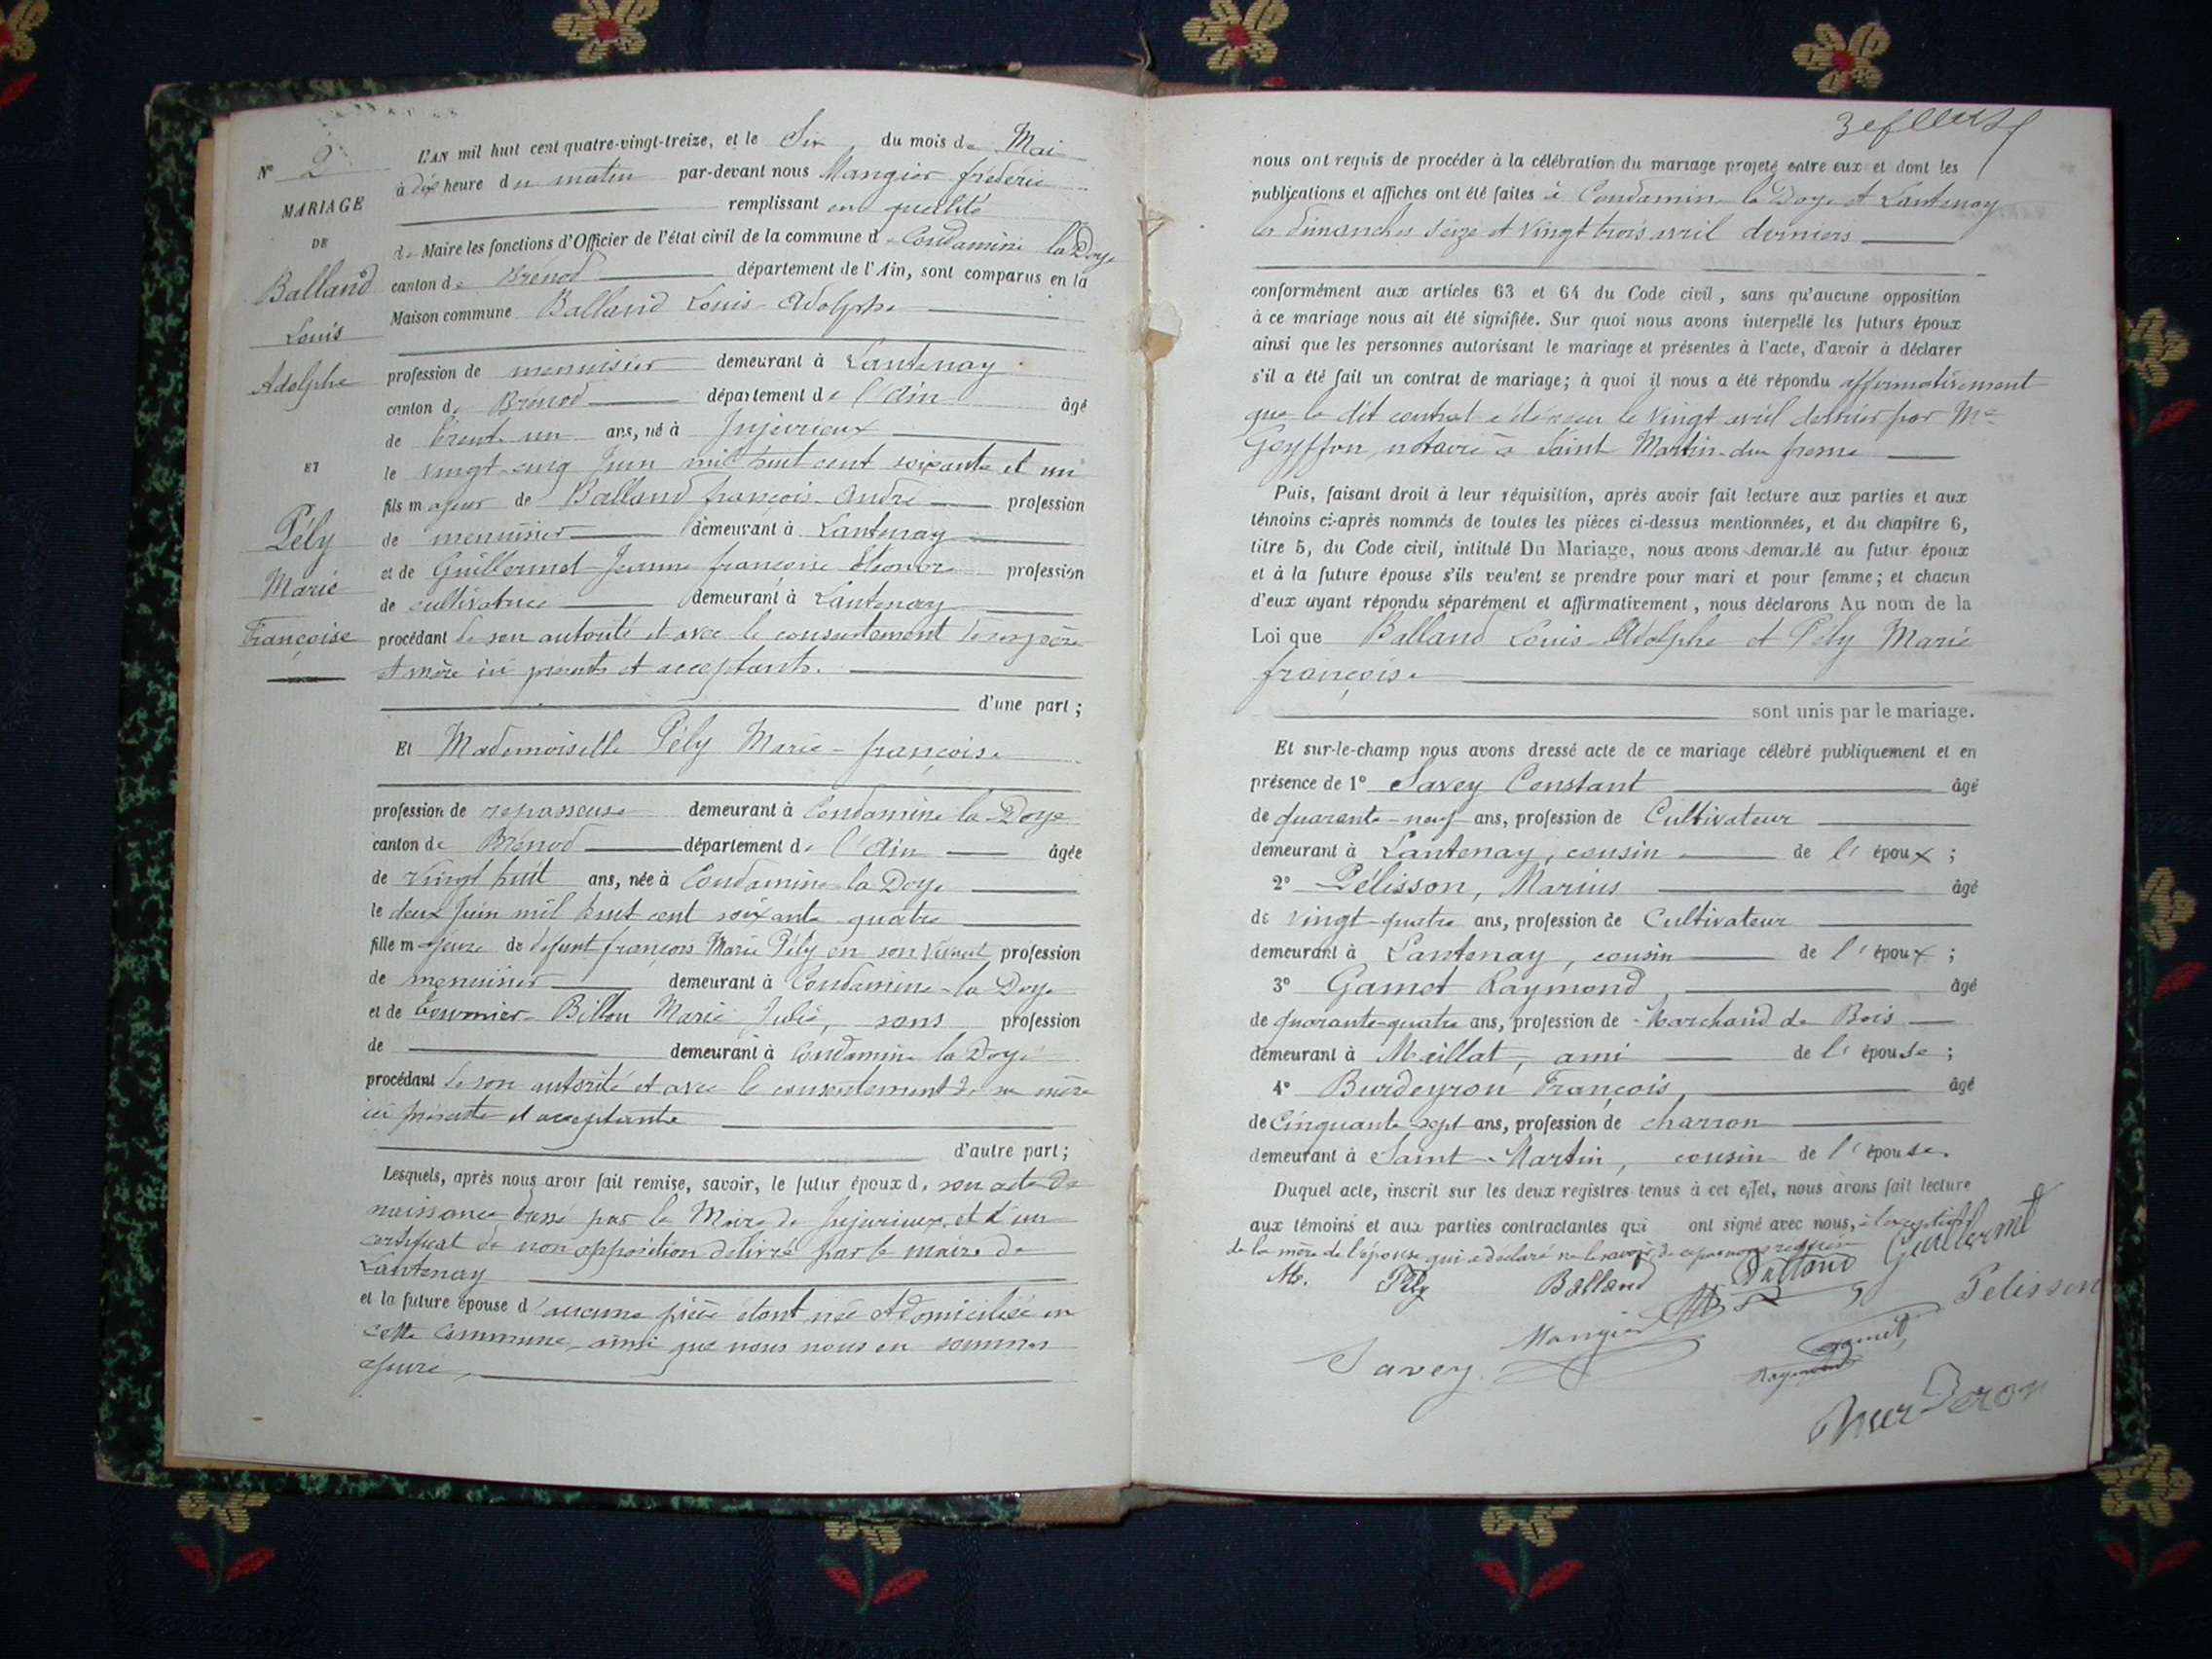 Nº 2
MARIAGE
DE
Balland
Louis
Adolphe
ET
Pély
Marie
Françoise
L'AN mil huit cent quatre-vingt-treize, et le Six du mois de Mai
à dix heure du matin par-devant nous Mangier frédéric
remplissant en qualité
de Maire les fonctions d'Officier de l'état civil de la commune de Condamine la Doye
canton de Brénod département de l'Ain, sont comparus en la
Maison commune Balland Louis-Adolphe
profession de menuisier demeurant à Lantenay
canton de Brénod département de l'Ain âgé
de trente un ans, né à Jujurieux
le vingt-cinq Juin mil huit cent soixante et un
fils majeur de Balland françois-André profession
de menuisier demeurant à Lantenay
et de Guillermet Jeanne françoise Eléonore profession
de cultivatrice demeurant à Lantenay
procédant de son autorité et avec le consentement de ses père
et mère ici présents et acceptants.
d'une part ;
Et Mademoiselle Pély Marie-françoise
profession de repasseuse demeurant à Condamine la Doye
canton de Brénod département de l'Ain âgée
de vingt huit ans, née à Condamine la Doye
le deux Juin mil huit cent soixante-quatre
fille majeure de défunt françois Marie Pély en son vivant profession
de menuisier demeurant à Condamine-la Doye
et de Tournier-Billon Marie Julie, sans profession
de demeurant à Condamine la Doye
procédant de son autorité et avec le consentement de sa mère
ici présente et acceptante
d'autre part ;
Lesquels, après nous avoir fait remise, savoir, le futur époux de son acte de
naissance dressé par le Maire de Jujurieux, et d'un
certificat de non opposition délivré par le maire de
Lantenay
et la future épouse d'aucune pièce étant née et domiciliée en
cette commune, ainsi que nous nous en sommes
assuré,
nous ont requis de procéder à la célébration du mariage projeté entre eux et dont les
publications et affiches ont été faites à Condamine la Doye et Lantenay
les dimanches seize et vingt trois avril derniers
conformément aux articles 63 et 64 du Code civil, sans qu'aucune opposition
à ce mariage nous ait été signifiée. Sur quoi nous avons interpellé les futurs époux
ainsi que les personnes autorisant le mariage et présentes à l'acte, d'avoir à déclarer
s'il a été fait un contrat de mariage; à quoi il nous a été répondu affirmativement
que le dit contrat a été reçu le vingt avril dernier par Me
notaire à Saint Martin-du fresne
Puis, faisant droit à leur réquisition, après avoir fait lecture aux parties et aux
témoins ci-après nommés de toutes les pièces ci-dessus mentionnées, et du chapitre 6,
titre 5, du Code civil, intitulé Du Mariage, nous avons demandé au futur époux
et à la future épouse s'ils veulent se prendre pour mari et pour femme; et chacun
d'eux ayant répondu séparément et affirmativement, nous déclarons Au nom de la
Loi que Balland Louis-Adolphe et Pély Marie
françoise
sont unis par le mariage.
Et sur-le-champ nous avons dressé acte de ce mariage célébré publiquement et en
présence de 1º Savey Constant âgé
de quarante-neuf ans, profession de Cultivateur
demeurant à Lantenay, cousin de l'époux ;
2º Pélisson, Marius âgé
de vingt-quatre ans, profession de Cultivateur
demeurant à Lantenay, cousin de l'époux ;
3º Gamet Raymond, âgé
de quarante-quatre ans, profession de Marchand de Bois
demeurant à Maillat, ami de l'épouse ;
4º Burdeyron François, âgé
de Cinquante sept ans, profession de charron
demeurant à Saint-Martin, cousin de l'épouse.
Duquel acte, inscrit sur les deux registres tenus à cet effet, nous avons fait lecture
aux témoins et aux parties contractantes qui ont signé avec nous, à l'exception
de la mère de l'épouse qui a déclaré ne le savoir, de ce par nous requise
M. Pély Balland Balland Guillermet
Mangier Pelisson
Savey Gamet
Raymond
Burderon